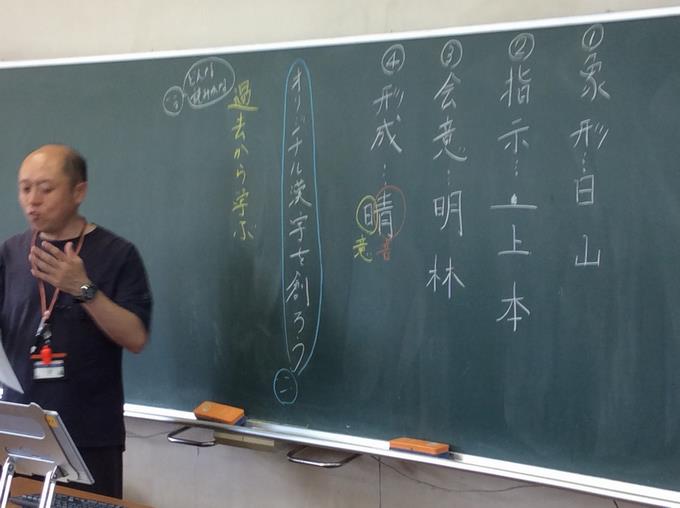 ①象形…日 山
②指示…⊥ 上 本
③会意…明 林
④形成…晴
意 音
オリジナル漢字を創ろう
過去から学ぶ
どんな